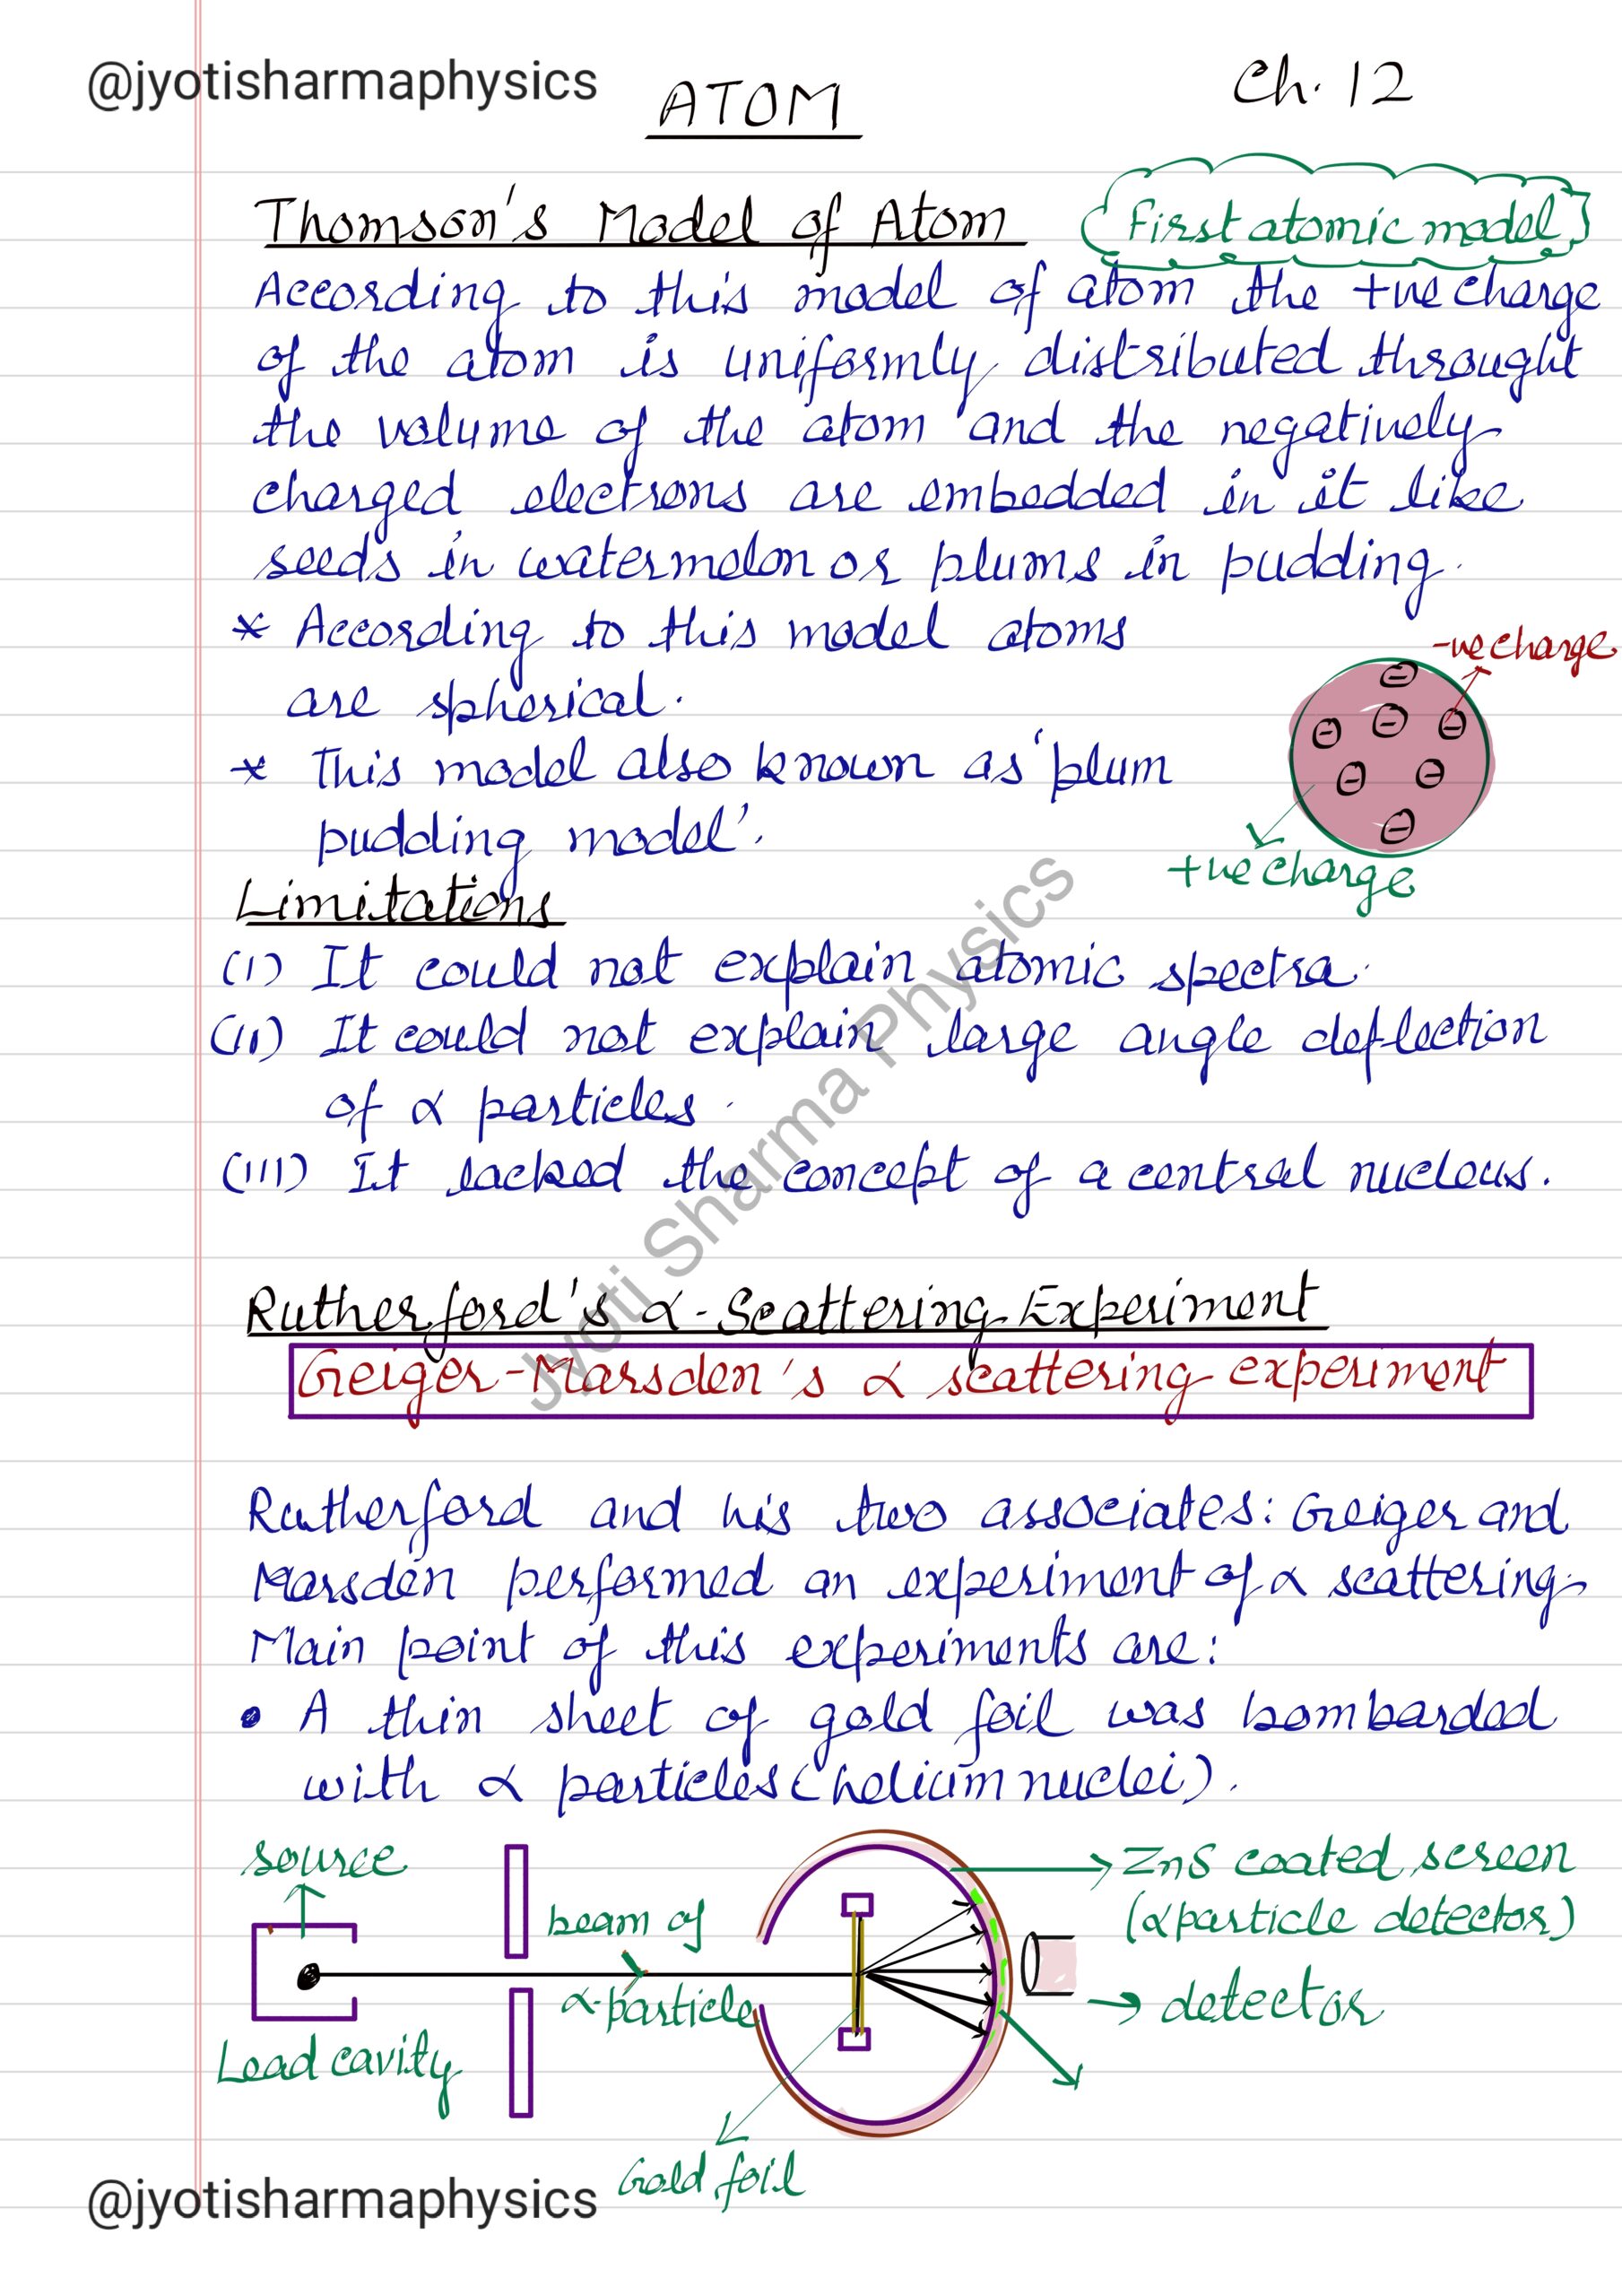 @jyotisharmaphysics
ATOM
Ch. 12
Thomson's Model of Atom
(First atomic model)
According to this model of atom the +ve charge
of the atom is uniformly distributed throught
the volume of the atom and the negatively
charged electrons are embedded in it like
seeds in watermelon or plums in pudding.
* According to this model atoms
are spherical.
* This model also known as 'plum
pudding model'.
-ve charge
+ve charge
Limitations
(i) It could not explain atomic spectra.
(ii) It could not explain large angle deflection
of α particles.
(iii) It lacked the concept of a central nucleus.
Jyoti Sharma Physics
Rutherford's α-Scattering Experiment
Geiger-Marsden's α scattering experiment
Rutherford and his two associates: Geiger and
Marsden performed an experiment of α scattering.
Main point of this experiments are:
• A thin sheet of gold foil was bombarded
with α particles (helium nuclei).
source
beam of
α-particle
Lead cavity
Gold foil
ZnS coated screen
(α particle detector)
→ detector
@jyotisharmaphysics